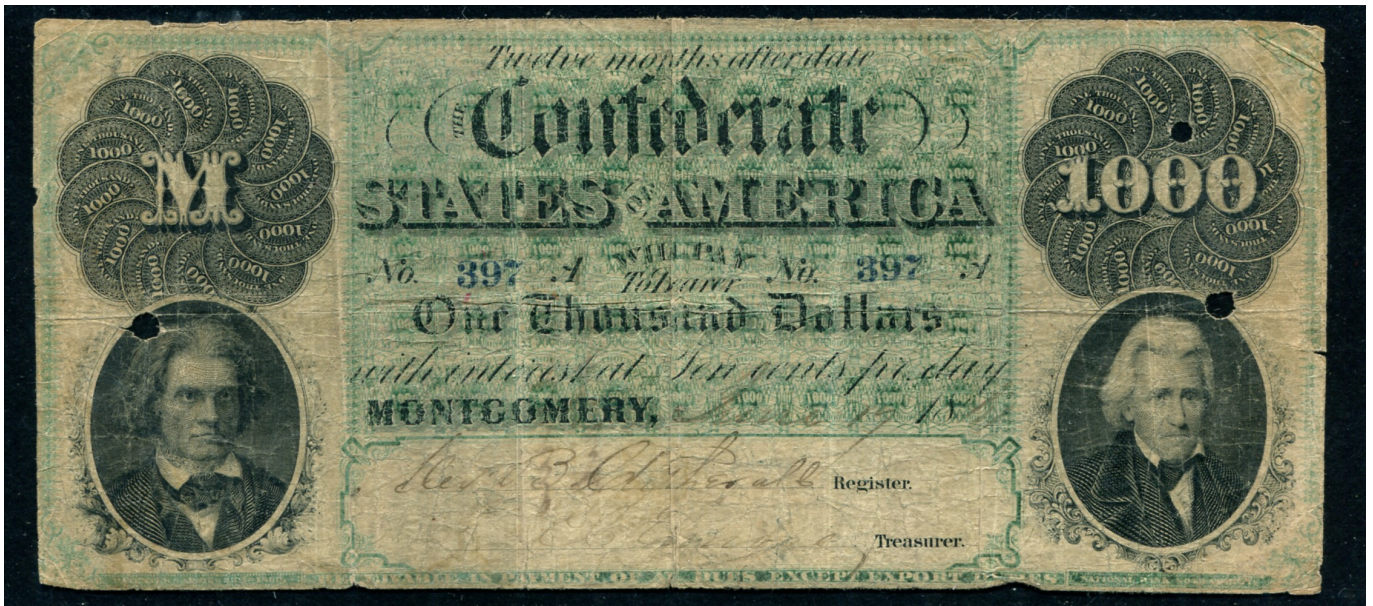 Twelve months after date
THE Confederate
STATES OF AMERICA
WILL PAY
No. 397 A To Bearer No. 397 A
One Thousand Dollars
with interest at Ten cents per day
MONTGOMERY, June 18
Register.
Treasurer.
M
1000
RECEIVABLE IN PAYMENT OF ALL DUES EXCEPT EXPORT DUTIES
NATIONAL BANK NOTE